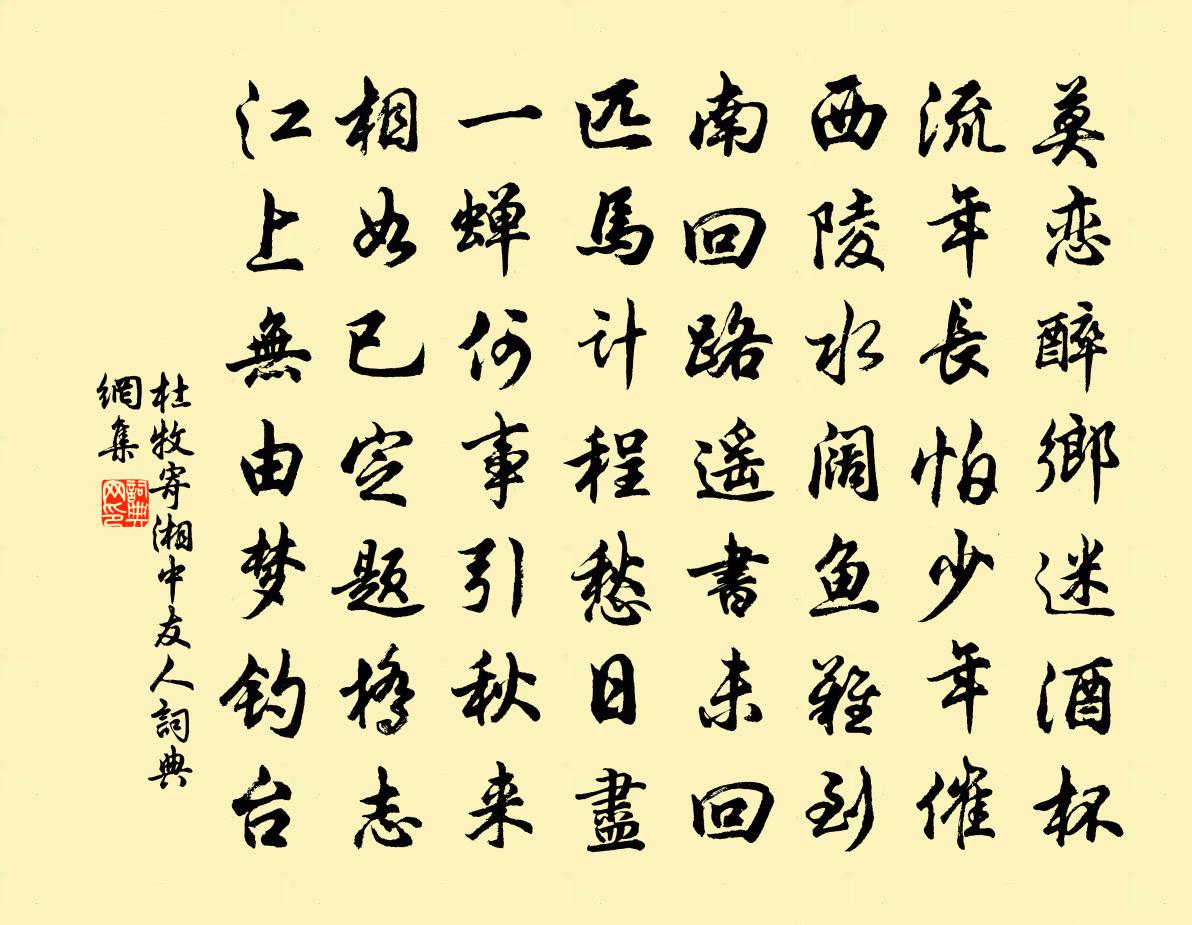 莫恋醉鄉迷酒杯
流年長怕少年催
西陵水阔魚難到
南回路遥書未回
匹馬计程愁日盡
一蝉何事引秋来
相如已定题橋志
江上無由梦钓台
杜牧寄湘中友人詞典
網集
詞典网印